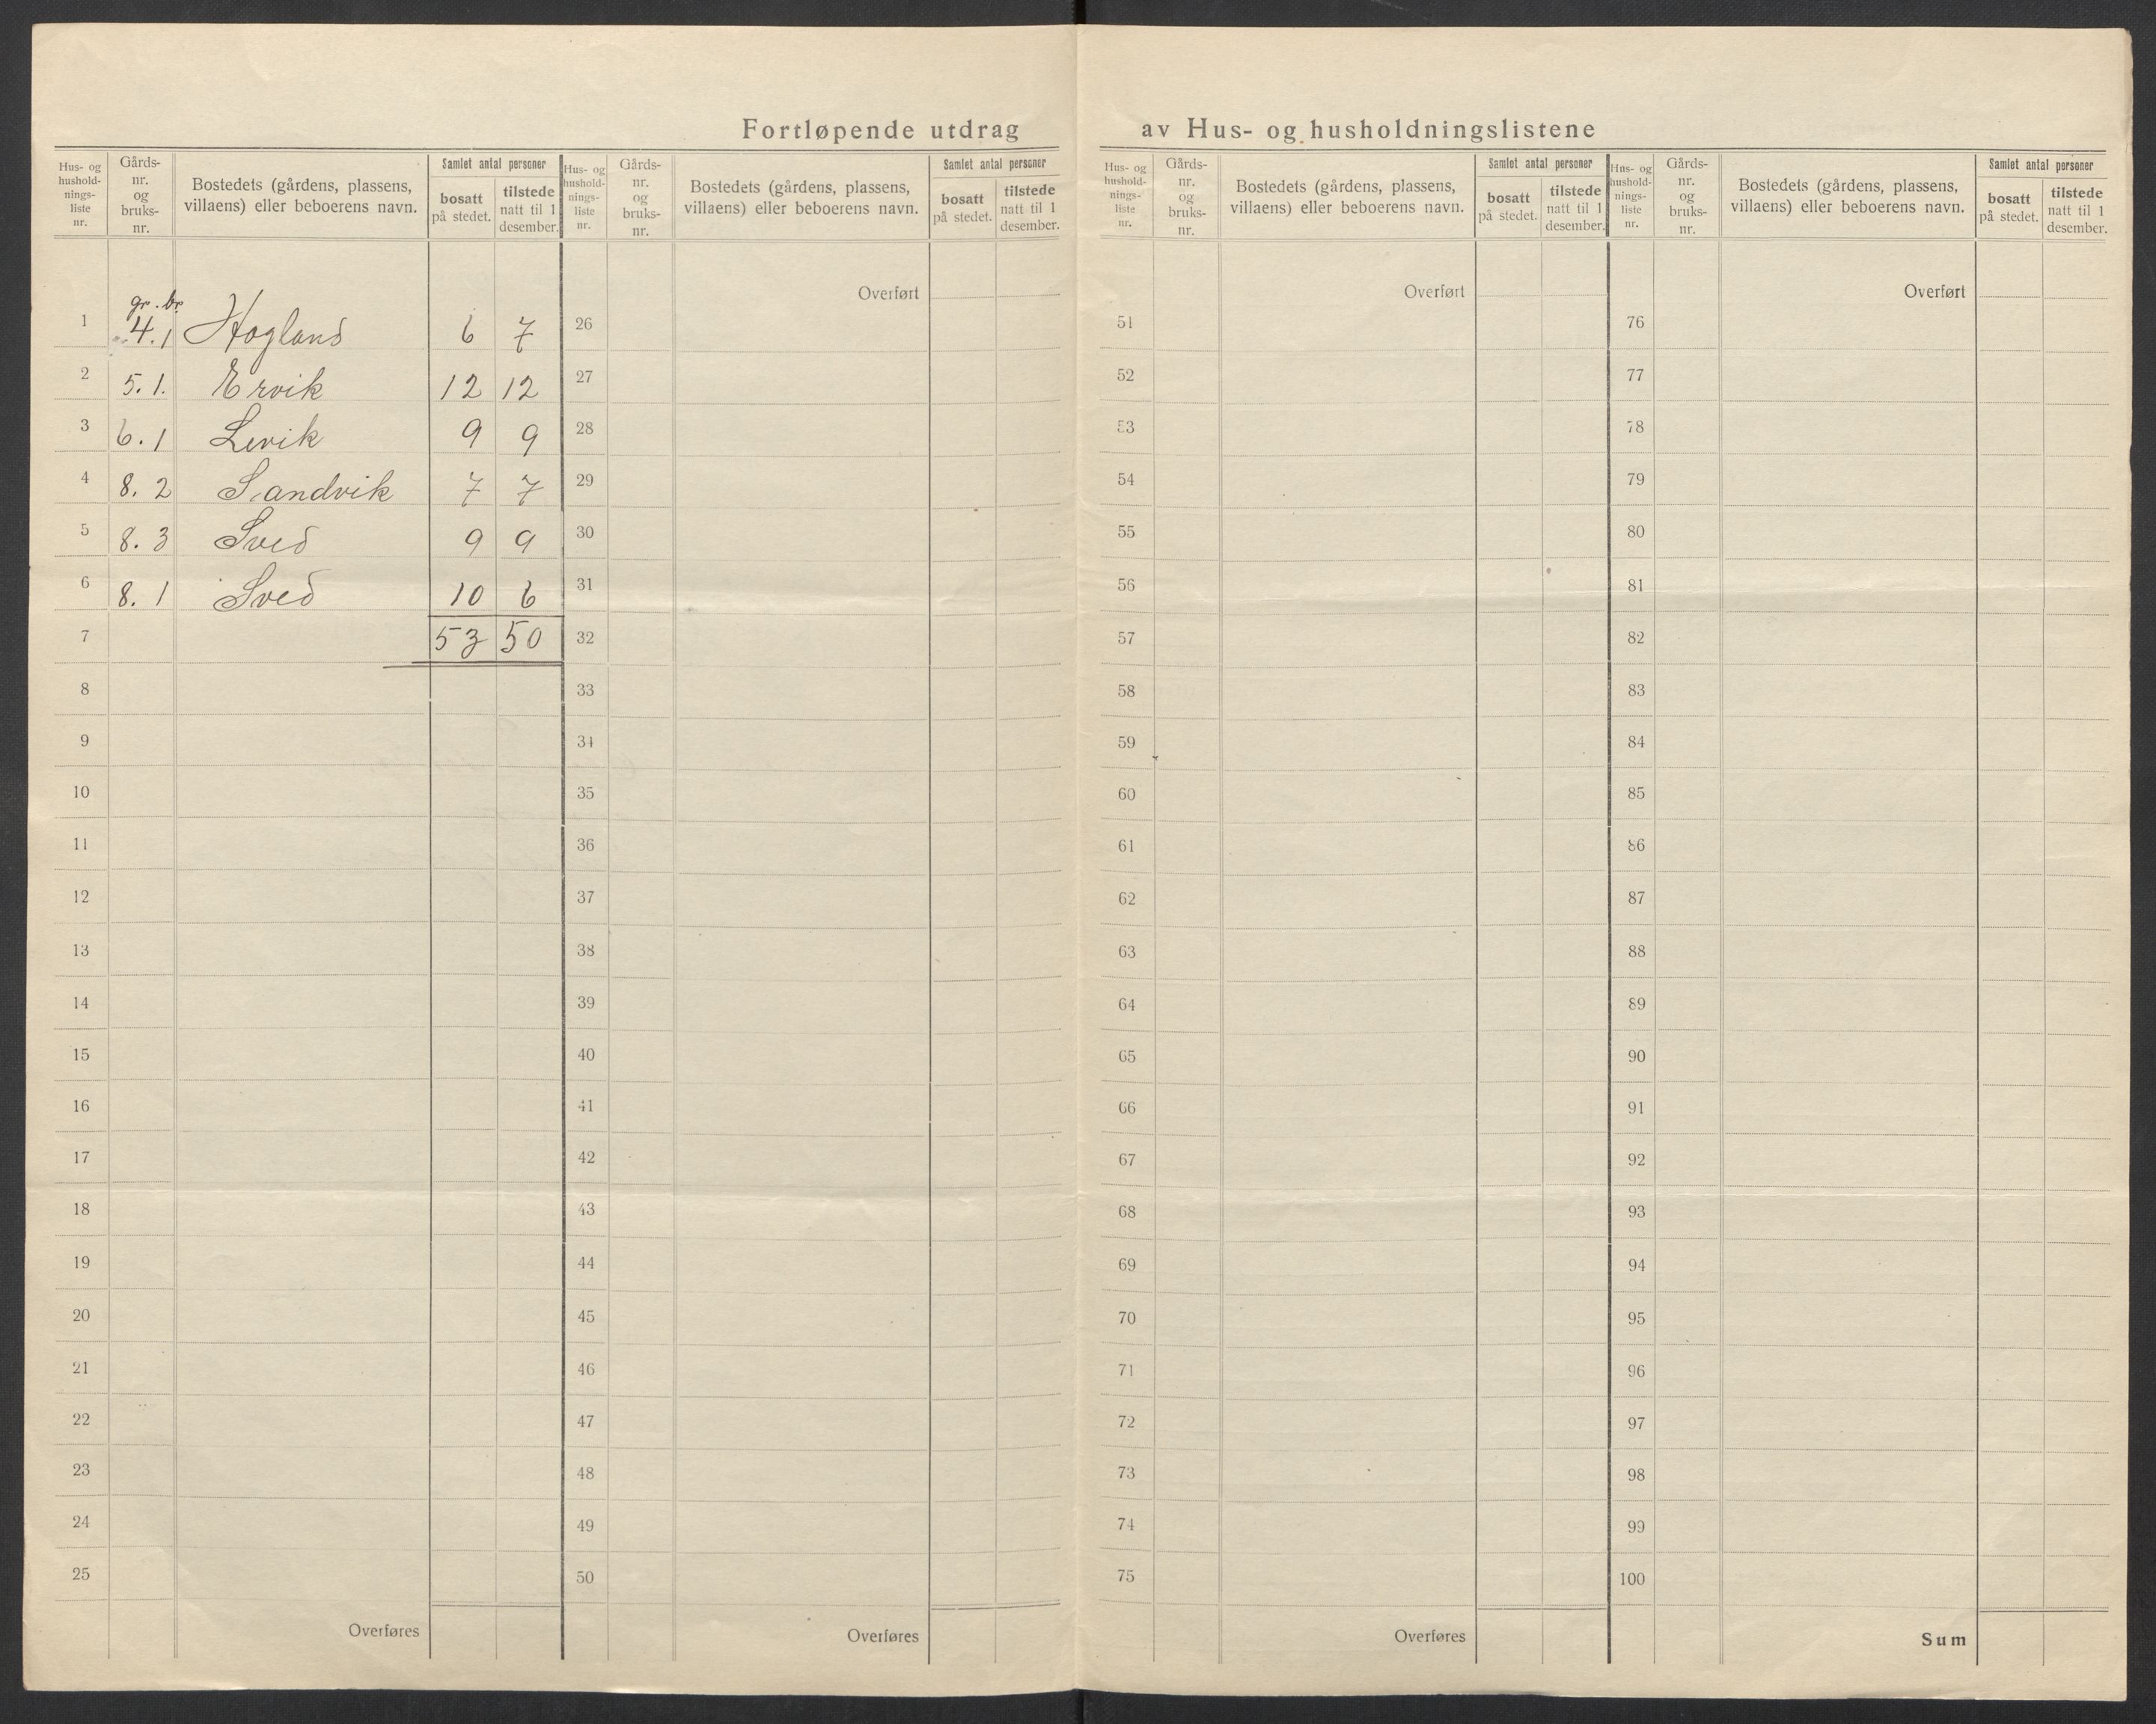 Fortløpende utdrag av Hus- og husholdningslistene
Hus- og hushold-nings-liste nr. | Gårds-nr. og bruks-nr. | Bostedets (gårdens, plassens, villaens) eller beboerens navn. | Samlet antal personer | bosatt på stedet. | tilstede natt til 1 desember.
Hus- og hushold-nings-liste nr. | Gårds-nr. og bruks-nr. | Bostedets (gårdens, plassens, villaens) eller beboerens navn. | Samlet antal personer | bosatt på stedet. | tilstede natt til 1 desember.
Hus- og hushold-nings-liste nr. | Gårds-nr. og bruks-nr. | Bostedets (gårdens, plassens, villaens) eller beboerens navn. | Samlet antal personer | bosatt på stedet. | tilstede natt til 1 desember.
Hus- og hushold-nings-liste nr. | Gårds-nr. og bruks-nr. | Bostedets (gårdens, plassens, villaens) eller beboerens navn. | Samlet antal personer | bosatt på stedet. | tilstede natt til 1 desember.
gr. br.
1 4.1 Hogland 6 7
2 5.1. Ervik 12 12
3 6.1 Levik 9 9
4 8.2 Sandvik 7 7
5 8.3 Sved 9 9
6 8.1 Sved 10 6
7 53 50
8
9
10
11
12
13
14
15
16
17
18
19
20
21
22
23
24
25
Overføres
Overført
26
27
28
29
30
31
32
33
34
35
36
37
38
39
40
41
42
43
44
45
46
47
48
49
50
Overføres
Overført
51
52
53
54
55
56
57
58
59
60
61
62
63
64
65
66
67
68
69
70
71
72
73
74
75
Overføres
Overført
76
77
78
79
80
81
82
83
84
85
86
87
88
89
90
91
92
93
94
95
96
97
98
99
100
Sum